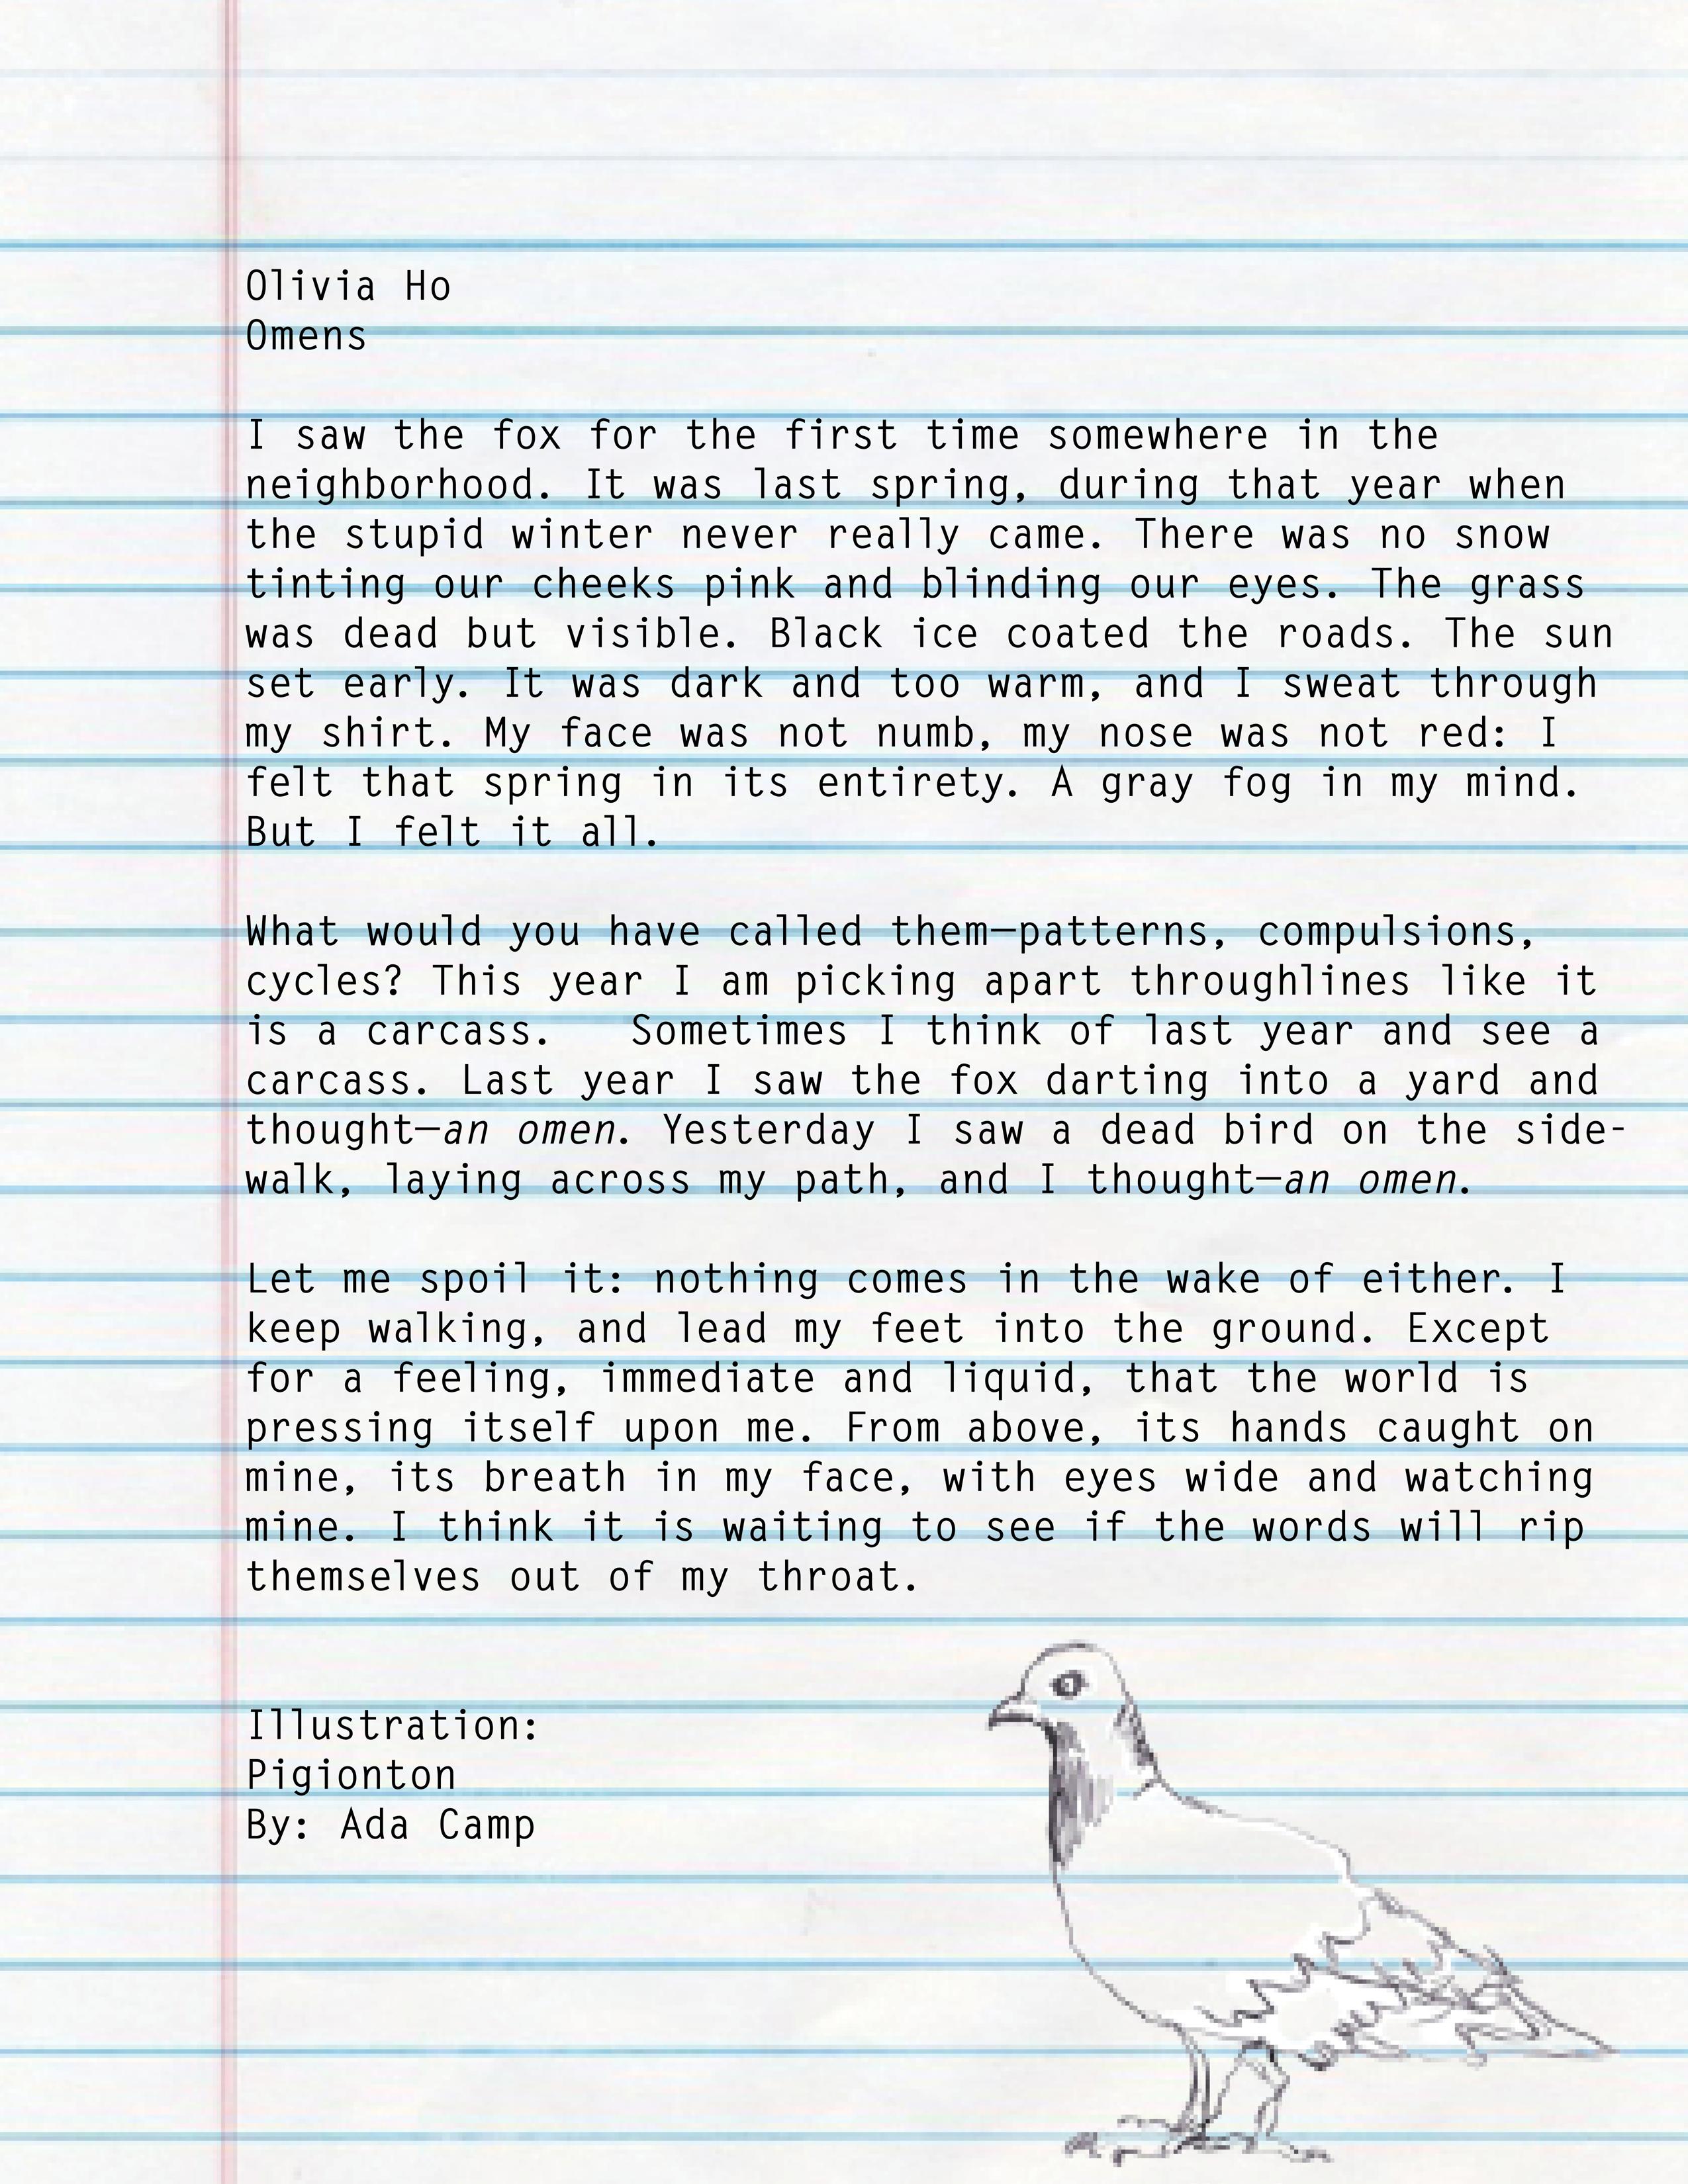 Olivia Ho
Omens
I saw the fox for the first time somewhere in the
neighborhood. It was last spring, during that year when
the stupid winter never really came. There was no snow
tinting our cheeks pink and blinding our eyes. The grass
was dead but visible. Black ice coated the roads. The sun
set early. It was dark and too warm, and I sweat through
my shirt. My face was not numb, my nose was not red: I
felt that spring in its entirety. A gray fog in my mind.
But I felt it all.
What would you have called them—patterns, compulsions,
cycles? This year I am picking apart throughlines like it
is a carcass.   Sometimes I think of last year and see a
carcass. Last year I saw the fox darting into a yard and
thought—an omen. Yesterday I saw a dead bird on the side-
walk, laying across my path, and I thought—an omen.
Let me spoil it: nothing comes in the wake of either. I
keep walking, and lead my feet into the ground. Except
for a feeling, immediate and liquid, that the world is
pressing itself upon me. From above, its hands caught on
mine, its breath in my face, with eyes wide and watching
mine. I think it is waiting to see if the words will rip
themselves out of my throat.
Illustration:
Pigionton
By: Ada Camp